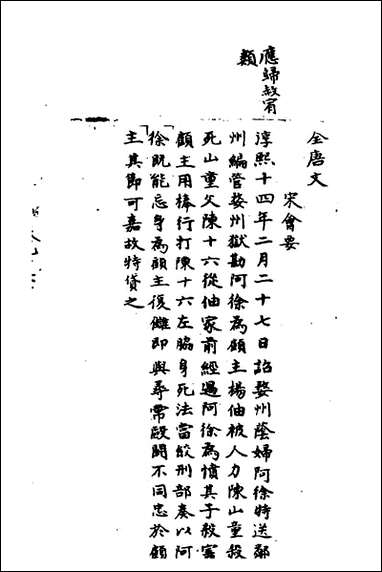 全唐文
宋會要
應婦赦宥
類
淳熙十四年二月二十七日詔婺州蔭婦阿徐特送鄰
州編管婺州獄勘阿徐為顧主楊伷被人力陳山童殺
死山重父陳十六從伷家前經過阿徐為憤其子殺害
顧主用棒行打陳十六左脇身死法當絞刑部奏以阿
徐既能忘身為顧主復讎即與尋常毆鬬不同忠於顧
主其節可嘉故特貸之